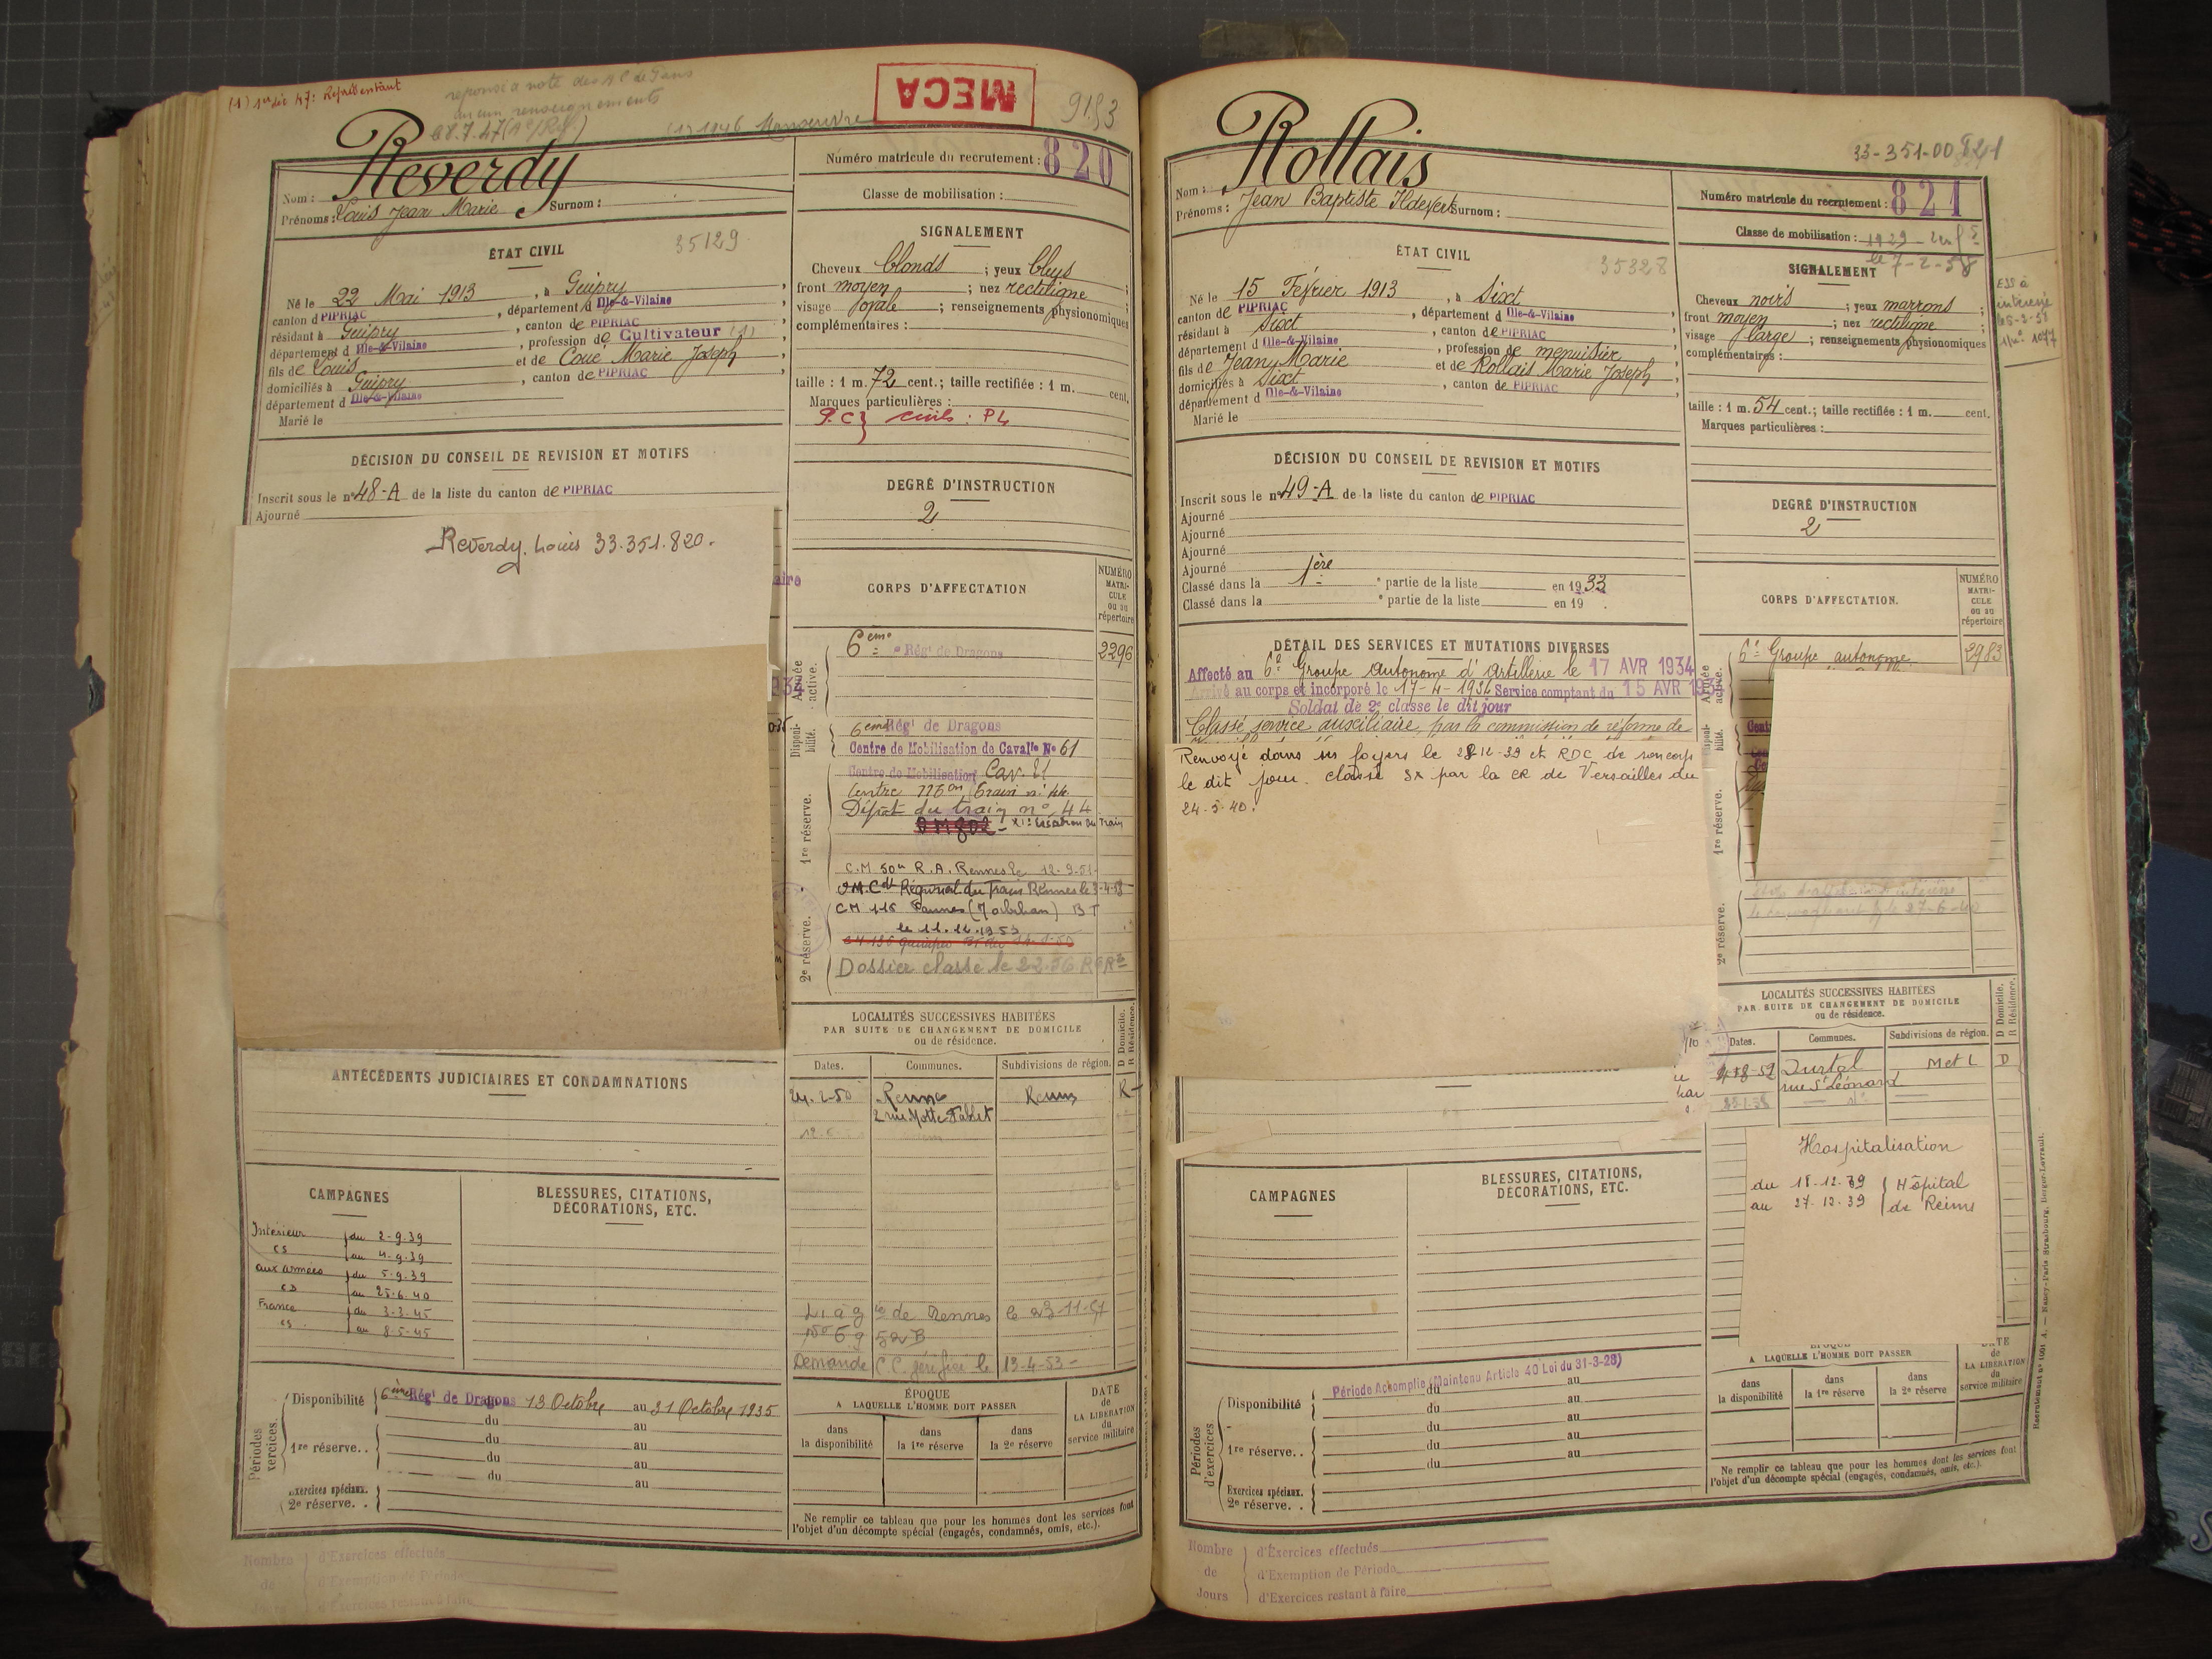 (1) 1er déc 47: Représentant
réponse à note des
aucun renseignements
1946 Manoeuvre
MECA
9153
Reverdy
Nom :
Prénoms : Louis Jean Marie Surnom :
Numéro matricule du recrutement : 820
Classe de mobilisation :
ÉTAT CIVIL
35129
Né le 22 Mai 1913, à Guipry,
canton de PIPRIAC, département d Ille-&-Vilaine
résidant à Guipry, canton de PIPRIAC
département d Ille-&-Vilaine, profession de Cultivateur (1)
fils de Louis et de Coué Marie Joseph
domiciliés à Guipry, canton de PIPRIAC
département d Ille-&-Vilaine
Marié le
SIGNALEMENT
Cheveux blonds ; yeux bleus
front moyen ; nez rectiligne
visage ovale ; renseignements physionomiques
complémentaires :
taille : 1 m. 72 cent.; taille rectifiée : 1 m. cent.
Marques particulières :
P.C } civils : PL
DÉCISION DU CONSEIL DE REVISION ET MOTIFS
Inscrit sous le n° 48-A de la liste du canton de PIPRIAC
Ajourné
Reverdy Louis 33.351.820.
DEGRÉ D'INSTRUCTION
2
CORPS D'AFFECTATION
NUMÉRO MATRI-CULE ou au répertoire
Armée active.
6eme Régt de Dragons 2296
Disponi-bilité.
6eme Régt de Dragons
Centre de Mobilisation de Cavalie No 61
1re réserve.
Centre de Mobilisation Cav.
Dépot du train no 44
XIe Escadron du Train
C.M 50e R.A. Rennes le 12.9.51
Régional du Train Rennes le 3-4-53
2e réserve.
CM 115 Vannes (Morbihan) BT
le 11.12.1953
Dossier classé le
LOCALITÉS SUCCESSIVES HABITÉES
PAR SUITE DE CHANGEMENT DE DOMICILE
ou de résidence.
Dates. Communes. Subdivisions de région. D Domicile. R Résidence.
24.2-50 Rennes Rennes R
2 rue Motte-Fablet
de Rennes
Demande C C vérifiée le 13-4-53
ANTÉCÉDENTS JUDICIAIRES ET CONDAMNATIONS
CAMPAGNES
BLESSURES, CITATIONS, DÉCORATIONS, ETC.
Intérieur du 2-9.39
CS au 4.9.39
aux armées du 5.9.39
CD au 25.6.40
France du 3-3-45
CS au 8-5-45
Périodes d'exercices.
Disponibilité 6ème Régt de Dragons 13 Octobre au 31 Octobre 1935
du au
1re réserve.. du au
du au
du au
Exercices spéciaux.
2e réserve..
ÉPOQUE
A LAQUELLE L'HOMME DOIT PASSER
dans la disponibilité dans la 1re réserve dans la 2e réserve
DATE de LA LIBÉRATION du service militaire
Ne remplir ce tableau que pour les hommes dont les services font
l'objet d'un décompte spécial (engagés, condamnés, omis, etc.).
Nombre d'Exercices effectués
de d'Exemption de Période
Jours d'Exercices restant à faire
33-351-00821
Rollais
Nom :
Prénoms : Jean Baptiste Ildefert Surnom :
Numéro matricule du recrutement : 821
Classe de mobilisation : 1929
le 7-2-58
ÉTAT CIVIL
35328
Né le 15 Février 1913, à Sixt
canton de PIPRIAC, département d Ille-&-Vilaine
résidant à Sixt, canton de PIPRIAC
département d Ille-&-Vilaine, profession de menuisier
fils de Jean Marie et de Rollais Marie Joseph
domiciliés à Sixt, canton de PIPRIAC
département d Ille-&-Vilaine
Marié le
SIGNALEMENT
Cheveux noirs ; yeux marrons
front moyen ; nez rectiligne
visage large ; renseignements physionomiques
complémentaires :
taille : 1 m. 54 cent.; taille rectifiée : 1 m. cent.
Marques particulières :
DÉCISION DU CONSEIL DE REVISION ET MOTIFS
Inscrit sous le n° 49-A de la liste du canton de PIPRIAC
Ajourné
Ajourné
Ajourné
Ajourné
Classé dans la 1ère partie de la liste en 1933
Classé dans la e partie de la liste en 19 .
DEGRÉ D'INSTRUCTION
2
DÉTAIL DES SERVICES ET MUTATIONS DIVERSES
Affecté au 6e Groupe autonome d'artillerie le 17 AVR 1934
Arrivé au corps et incorporé le 17-4-1934 Service comptant du 15 AVR 1934
Soldat de 2e classe le dit jour
Classé service auxiliaire, par la commission de réforme de
Renvoyé dans ses foyers le 28-12-39 et RDC de son corps
le dit jour. classé SX par la CR de Versailles du
24.5.40.
CORPS D'AFFECTATION.
NUMÉRO MATRI-CULE ou au répertoire
6e Groupe autonome 2983
1re réserve.
2e réserve.
LOCALITÉS SUCCESSIVES HABITÉES
PAR SUITE DE CHANGEMENT DE DOMICILE
ou de résidence.
Dates. Communes. Subdivisions de région. D Domicile. R Résidence.
Durtal M et L D
rue St Léonard
Hospitalisation
du 18.12.39 Hôpital
au 27.12.39 de Reims
CAMPAGNES
BLESSURES, CITATIONS, DÉCORATIONS, ETC.
Périodes d'exercices
Période Accomplie (Maintenu Article 40 Loi du 31-3-28)
Disponibilité du au
du au
1re réserve.. du au
du au
du au
Exercices spéciaux.
2e réserve..
A LAQUELLE L'HOMME DOIT PASSER
dans la disponibilité dans la 1re réserve dans la 2e réserve
de LA LIBÉRATION du service militaire
Ne remplir ce tableau que pour les hommes dont les services font
l'objet d'un décompte spécial (engagés, condamnés, omis, etc.).
Nombre d'Exercices effectués
de d'Exemption de Période
Jours d'Exercices restant à faire